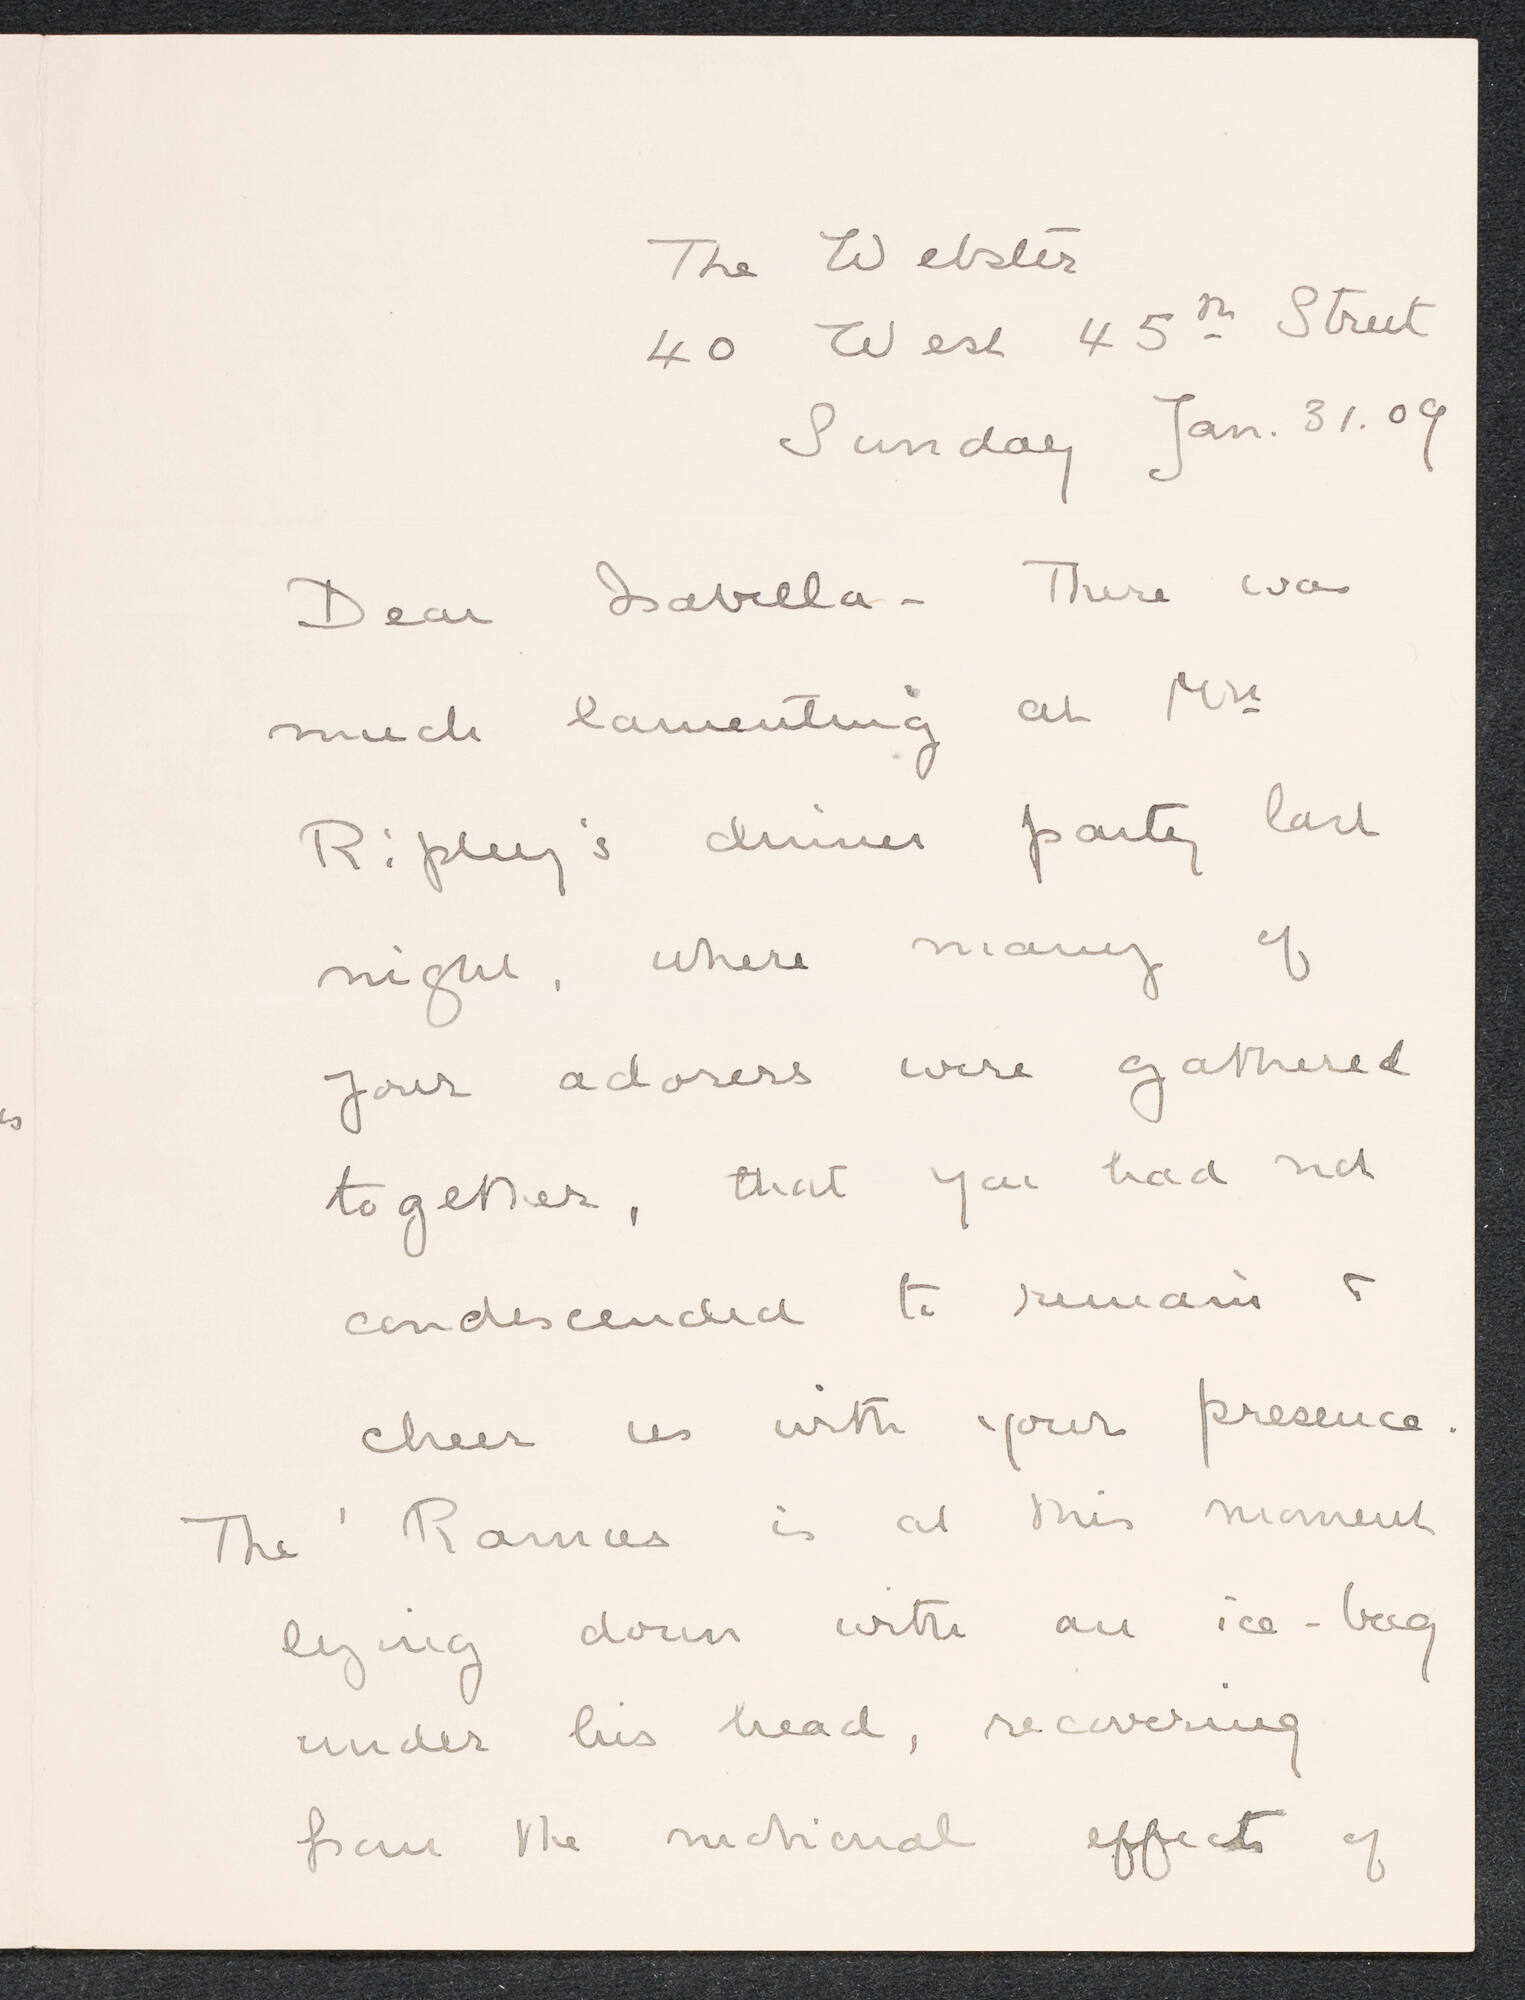 The Webster
40 West 45th Street
Sunday Jan. 31. 09
Dear Isabella - There was
much lamenting at Mrs
Ripley's dinner party last
night, where many of
your adorers were gathered
together, that you had not
condescended to remain &
cheer us with your presence.
The ' Ramus is at this moment
lying down with an ice-bag
under his head, recovering
from the notional effects of